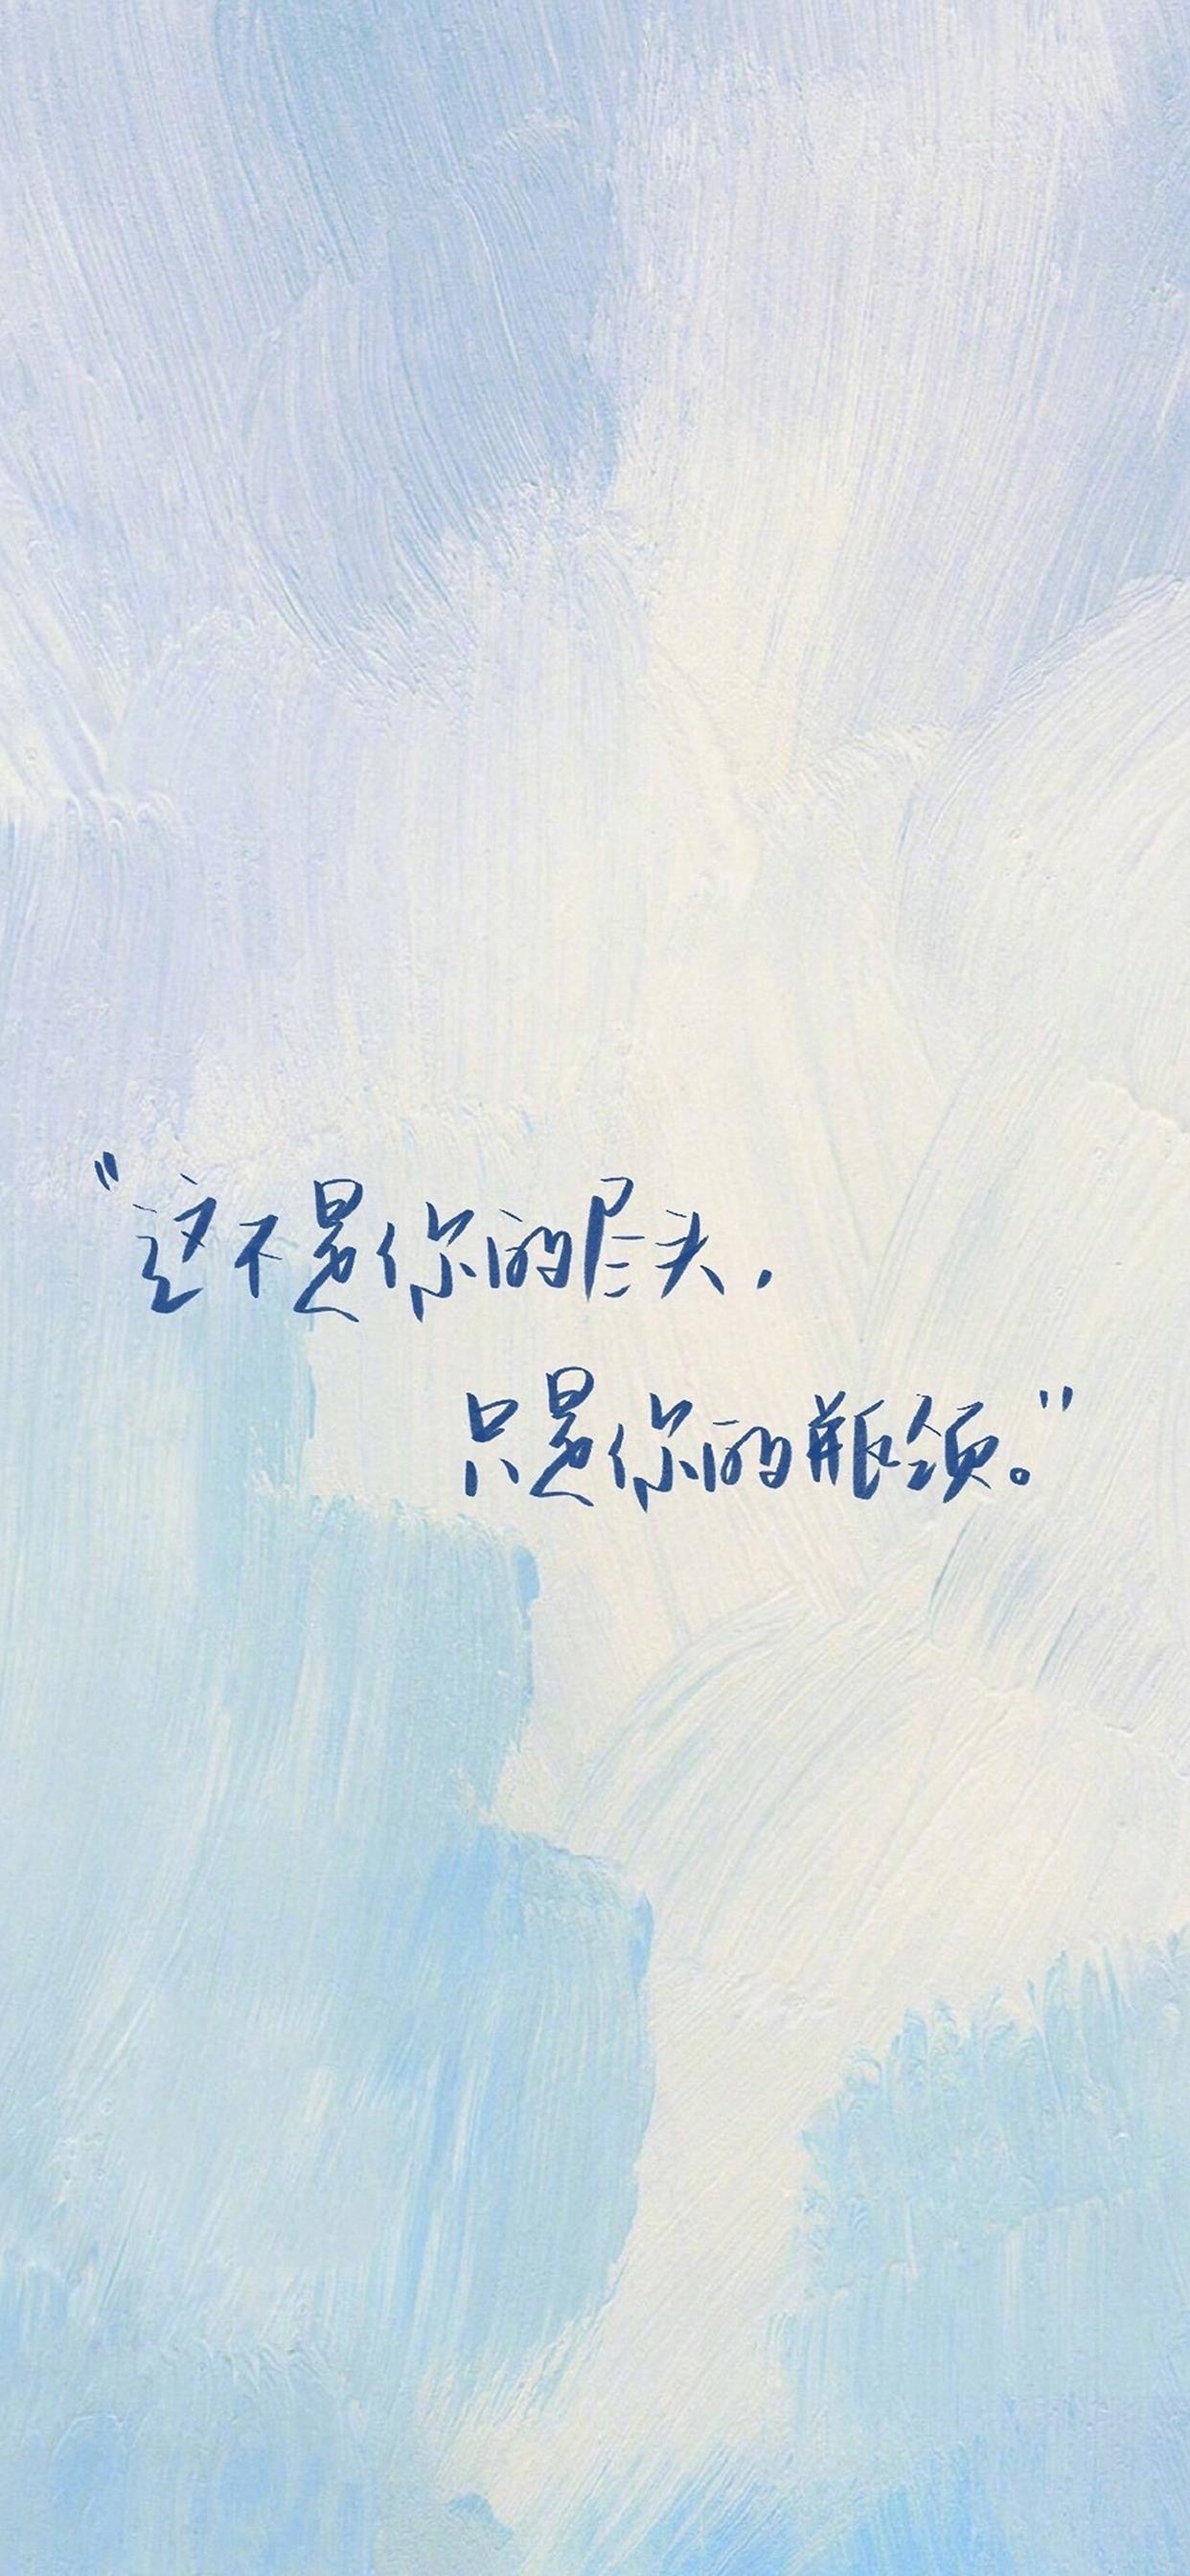 “这不是你的尽头，
只是你的瓶颈。”